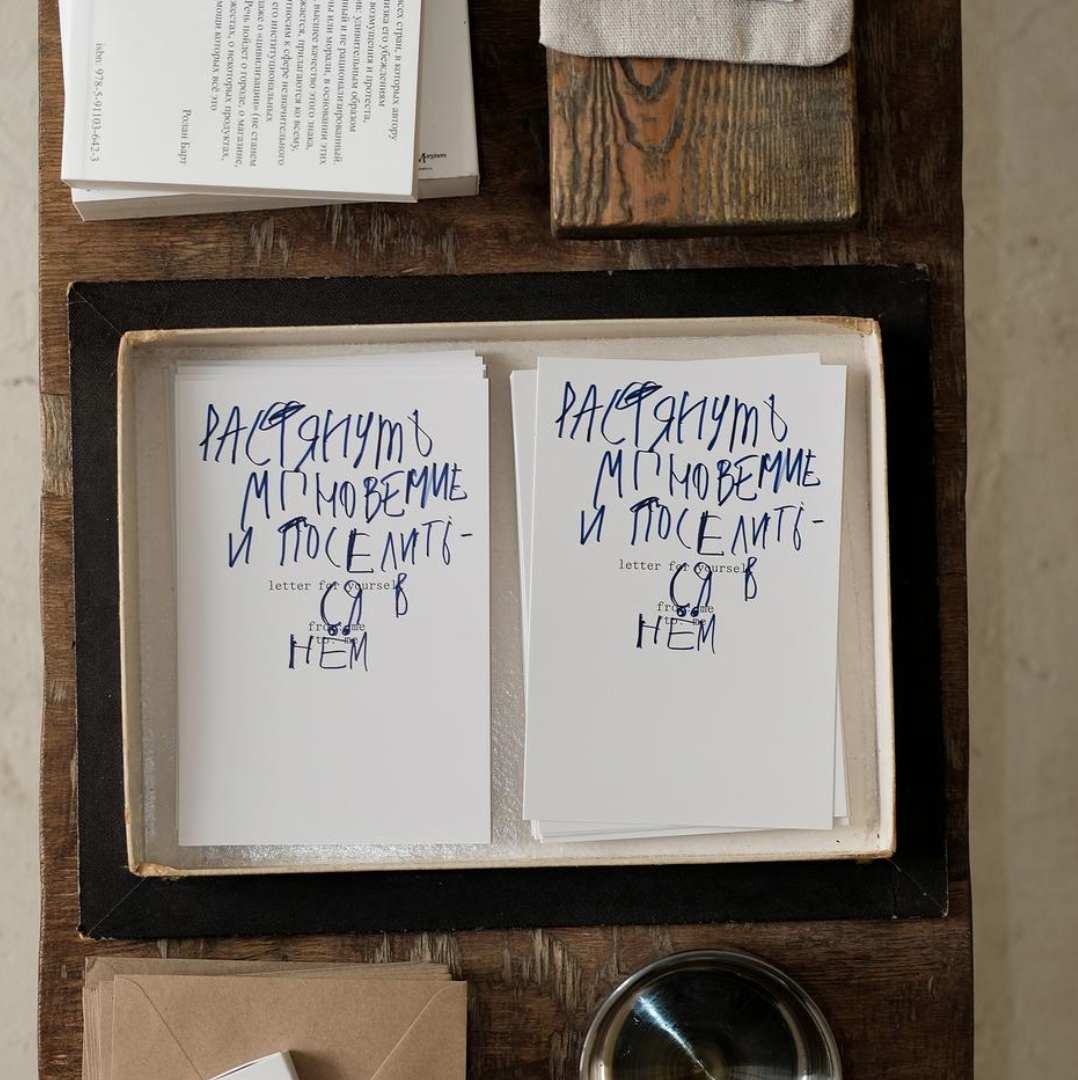 всех стран, в которых автору
его убеждениям
возмущения и протеста,
удивительным образом
и не рационализированный.
или морали, в основании этих
высшее качество этого знака,
прилагаются ко всему,
к сфере незначительного
его институциональных
о «цивилизации» (не станем
Речь пойдет о городе, о магазине,
жестах, о некоторых продуктах,
помощи которых всё это
Ролан Барт
isbn: 978-5-91103-642-3
РАСТЯНУТЬ
МГНОВЕНИЕ
И ПОСЕЛИТЬ-
letter for yourself
СЯ В
from: me
to: me
НЁМ
РАСТЯНУТЬ
МГНОВЕНИЕ
И ПОСЕЛИТЬ-
letter for yourself
СЯ В
from: me
to: me
НЁМ